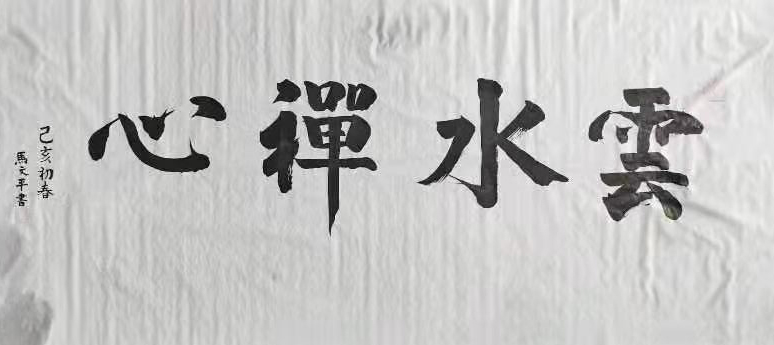 雲水禪心
己亥初春
馬文平書